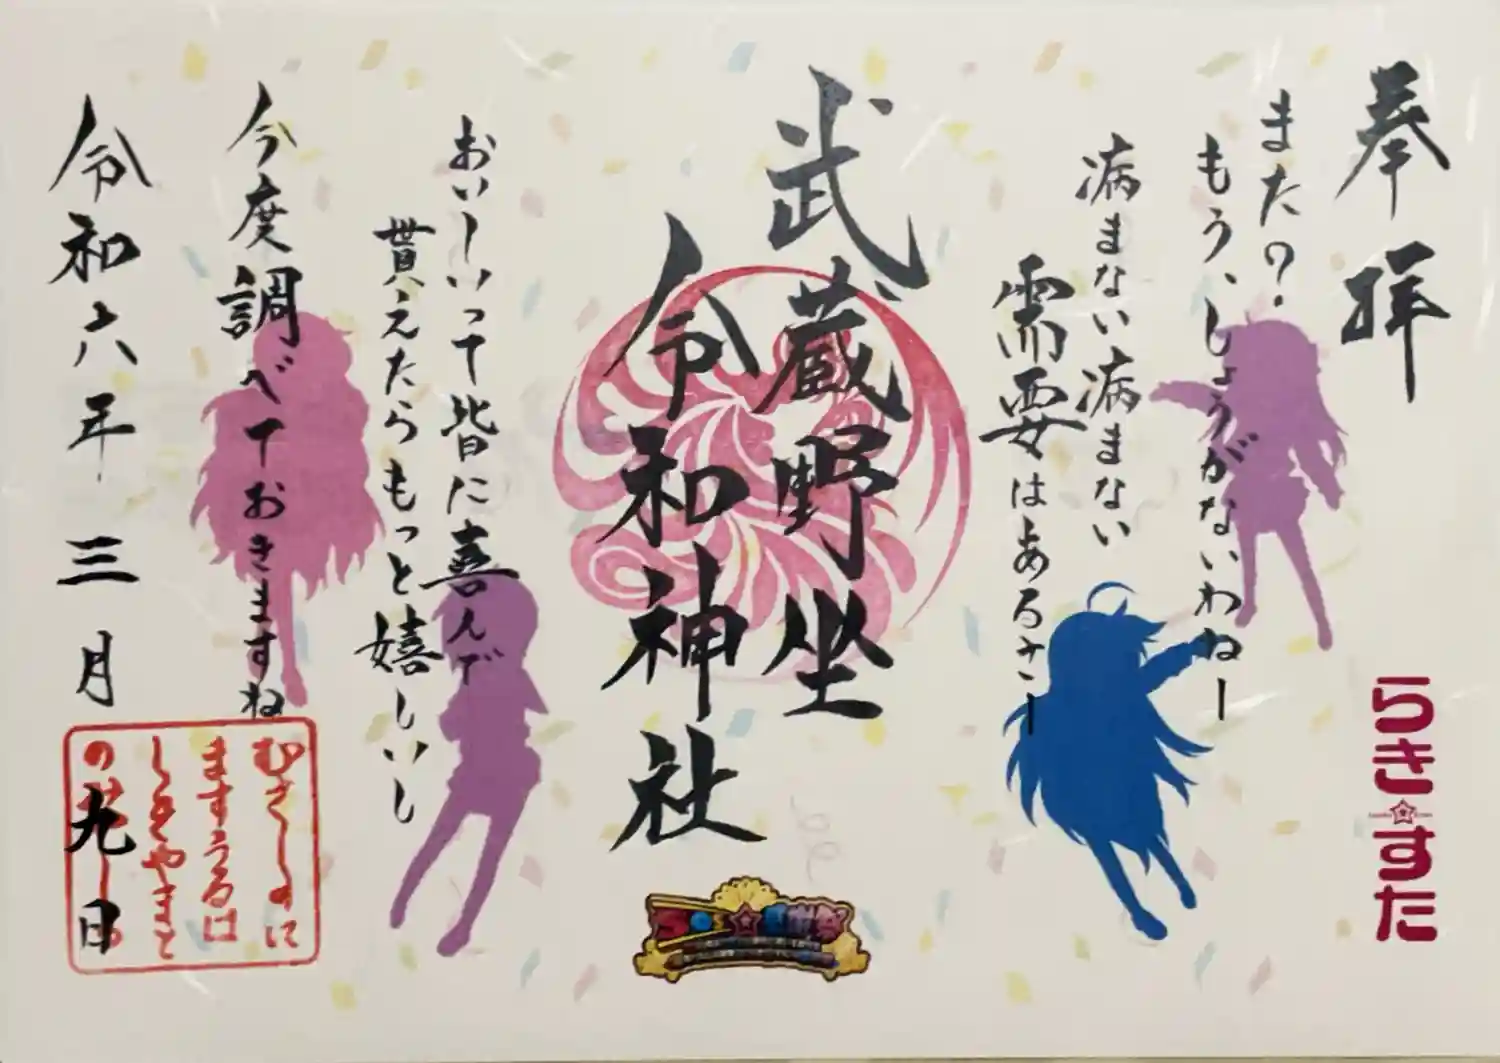 奉拝
また?
もう、しょうがないわねー
病まない病まない
需要はあるさー
武蔵野坐
令和神社
おいしいって皆に喜んで
貰えたらもっと嬉しいし
今度調べておきますね
令和六年三月九日
むさしのに
ますうるは
しきやまと
らき☆すた